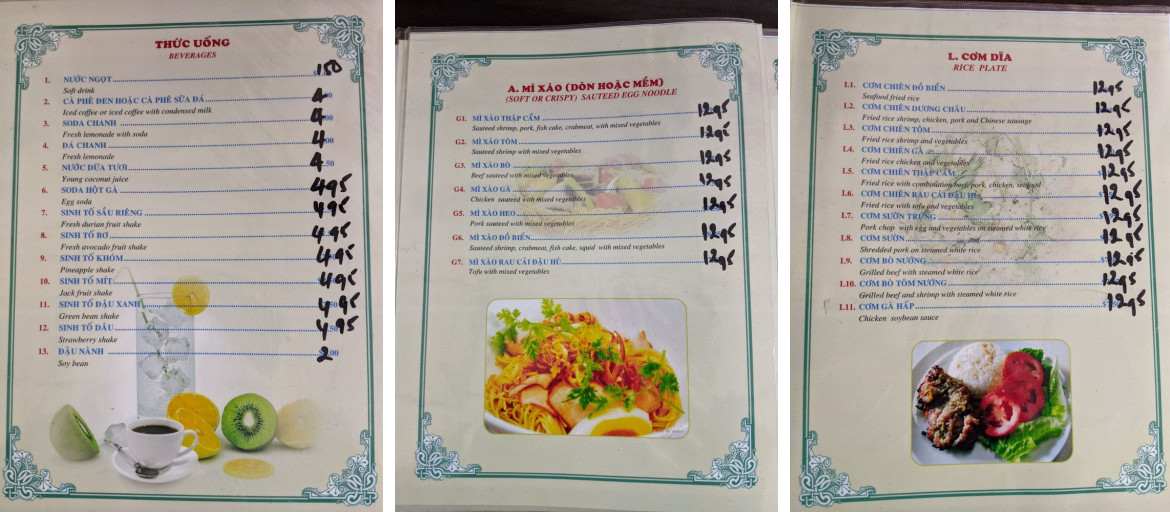 THỨC UỐNG
BEVERAGES
1. NƯỚC NGỌT 150
Soft drink
2. CÀ PHÊ ĐEN HOẶC CÀ PHÊ SỮA ĐÁ 4
Iced coffee or iced coffee with condensed milk
3. SODA CHANH 4
Fresh lemonade with soda
4. ĐÁ CHANH 4
Fresh lemonade
5. NƯỚC DỪA TƯƠI 4
Young coconut juice
6. SODA HỘT GÀ 495
Egg soda
7. SINH TỐ SẦU RIÊNG 495
Fresh durian fruit shake
8. SINH TỐ BƠ 495
Fresh avocado fruit shake
9. SINH TỐ KHÓM 495
Pineapple shake
10. SINH TỐ MÍT 495
Jack fruit shake
11. SINH TỐ ĐẬU XANH 495
Green bean shake
12. SINH TỐ DÂU 495
Strawberry shake
13. ĐẬU NÀNH 2
Soy bean
A. MÌ XÀO (DÒN HOẶC MỀM)
(SOFT OR CRISPY) SAUTEED EGG NOODLE
G1. MÌ XÀO THẬP CẨM 1295
Sauteed shrimp, pork, fish cake, crabmeat, with mixed vegetables
G2. MÌ XÀO TÔM 1295
Sauteed shrimp with mixed vegetables
G3. MÌ XÀO BÒ 1295
Beef sauteed with mixed vegetables
G4. MÌ XÀO GÀ 1295
Chicken sauteed with mixed vegetables
G5. MÌ XÀO HEO 1295
Pork sauteed with mixed vegetables
G6. MÌ XÀO ĐỒ BIỂN 1295
Sauteed shrimp, crabmeat, fish cake, squid with mixed vegetables
G7. MÌ XÀO RAU CẢI ĐẬU HỦ 1295
Tofu with mixed vegetables
L. CƠM DĨA
RICE PLATE
L1. CƠM CHIÊN ĐỒ BIỂN 1295
Seafood fried rice
L2. CƠM CHIÊN DƯƠNG CHÂU 1295
Fried rice shrimp, chicken, pork and Chinese sausage
L3. CƠM CHIÊN TÔM 1295
Fried rice shrimp and vegetables
L4. CƠM CHIÊN GÀ 1295
Fried rice chicken and vegetables
L5. CƠM CHIÊN THẬP CẨM 1295
Fried rice with combination beef, pork, chicken, seafood
L6. CƠM CHIÊN RAU CẢI ĐẬU HỦ 1295
Fried rice with tofu and vegetables
L7. CƠM SƯỜN TRỨNG 1295
Pork chop with egg and vegetables on steamed white rice
L8. CƠM SƯỜN 1295
Shredded pork on steamed white rice
L9. CƠM BÒ NƯỚNG 1295
Grilled beef with steamed white rice
L10. CƠM BÒ TÔM NƯỚNG 1295
Grilled beef and shrimp with steamed white rice
L11. CƠM GÀ HẤP 1295
Chicken soybean sauce